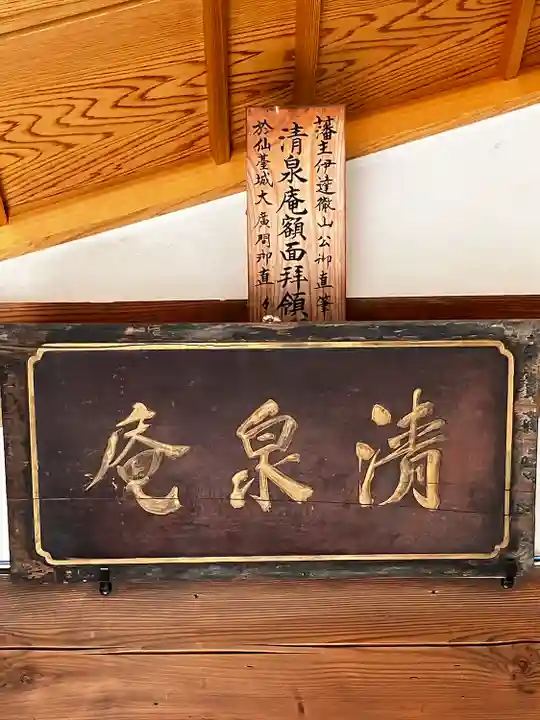 藩主伊達徹山公御直筆
清泉庵額面拝領
於仙臺城大廣間御直々
清泉庵